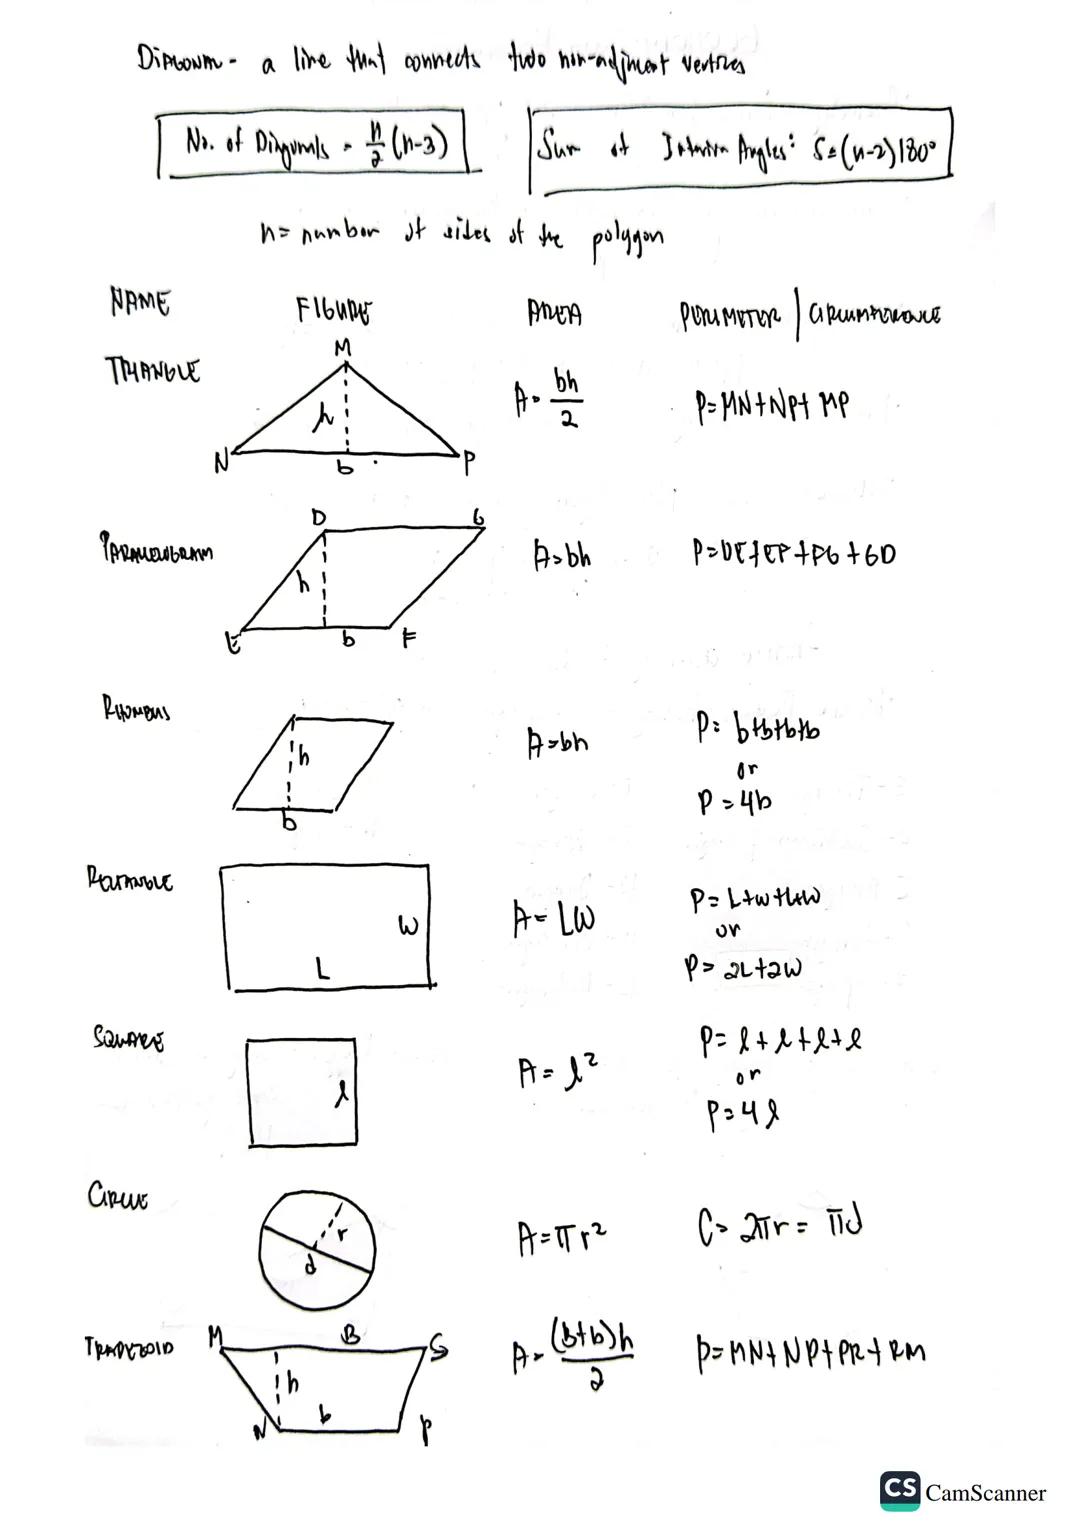 DIAGONAL - a line that connects two non-adjacent vertices
No. of Diagonals = n/2 (n-3)
Sum of Interior Angles: S=(n-2)180°
n= number of sides of the polygon
NAME FIGURE AREA PERIMETER | CIRCUMFERENCE
TRIANGLE
M
h
N b P
A= bh/2
P=MN+NP+MP
PARALLELOGRAM
D G
h
E b F
A=bh
P=DE+EF+FG+GD
RHOMBUS
h
b
A=bh
P= b+b+b+b
or
P=4b
RECTANGLE
W
L
A= LW
P= L+W+L+W
or
P= 2L+2W
SQUARE
l
A= l²
P= l+l+l+l
or
P=4l
CIRCLE
r
d
A=πr²
C= 2πr= πd
TRAPEZOID
M B S
h
N b P
A= (B+b)h/2
P=MN+NP+PR+RM
CS CamScanner